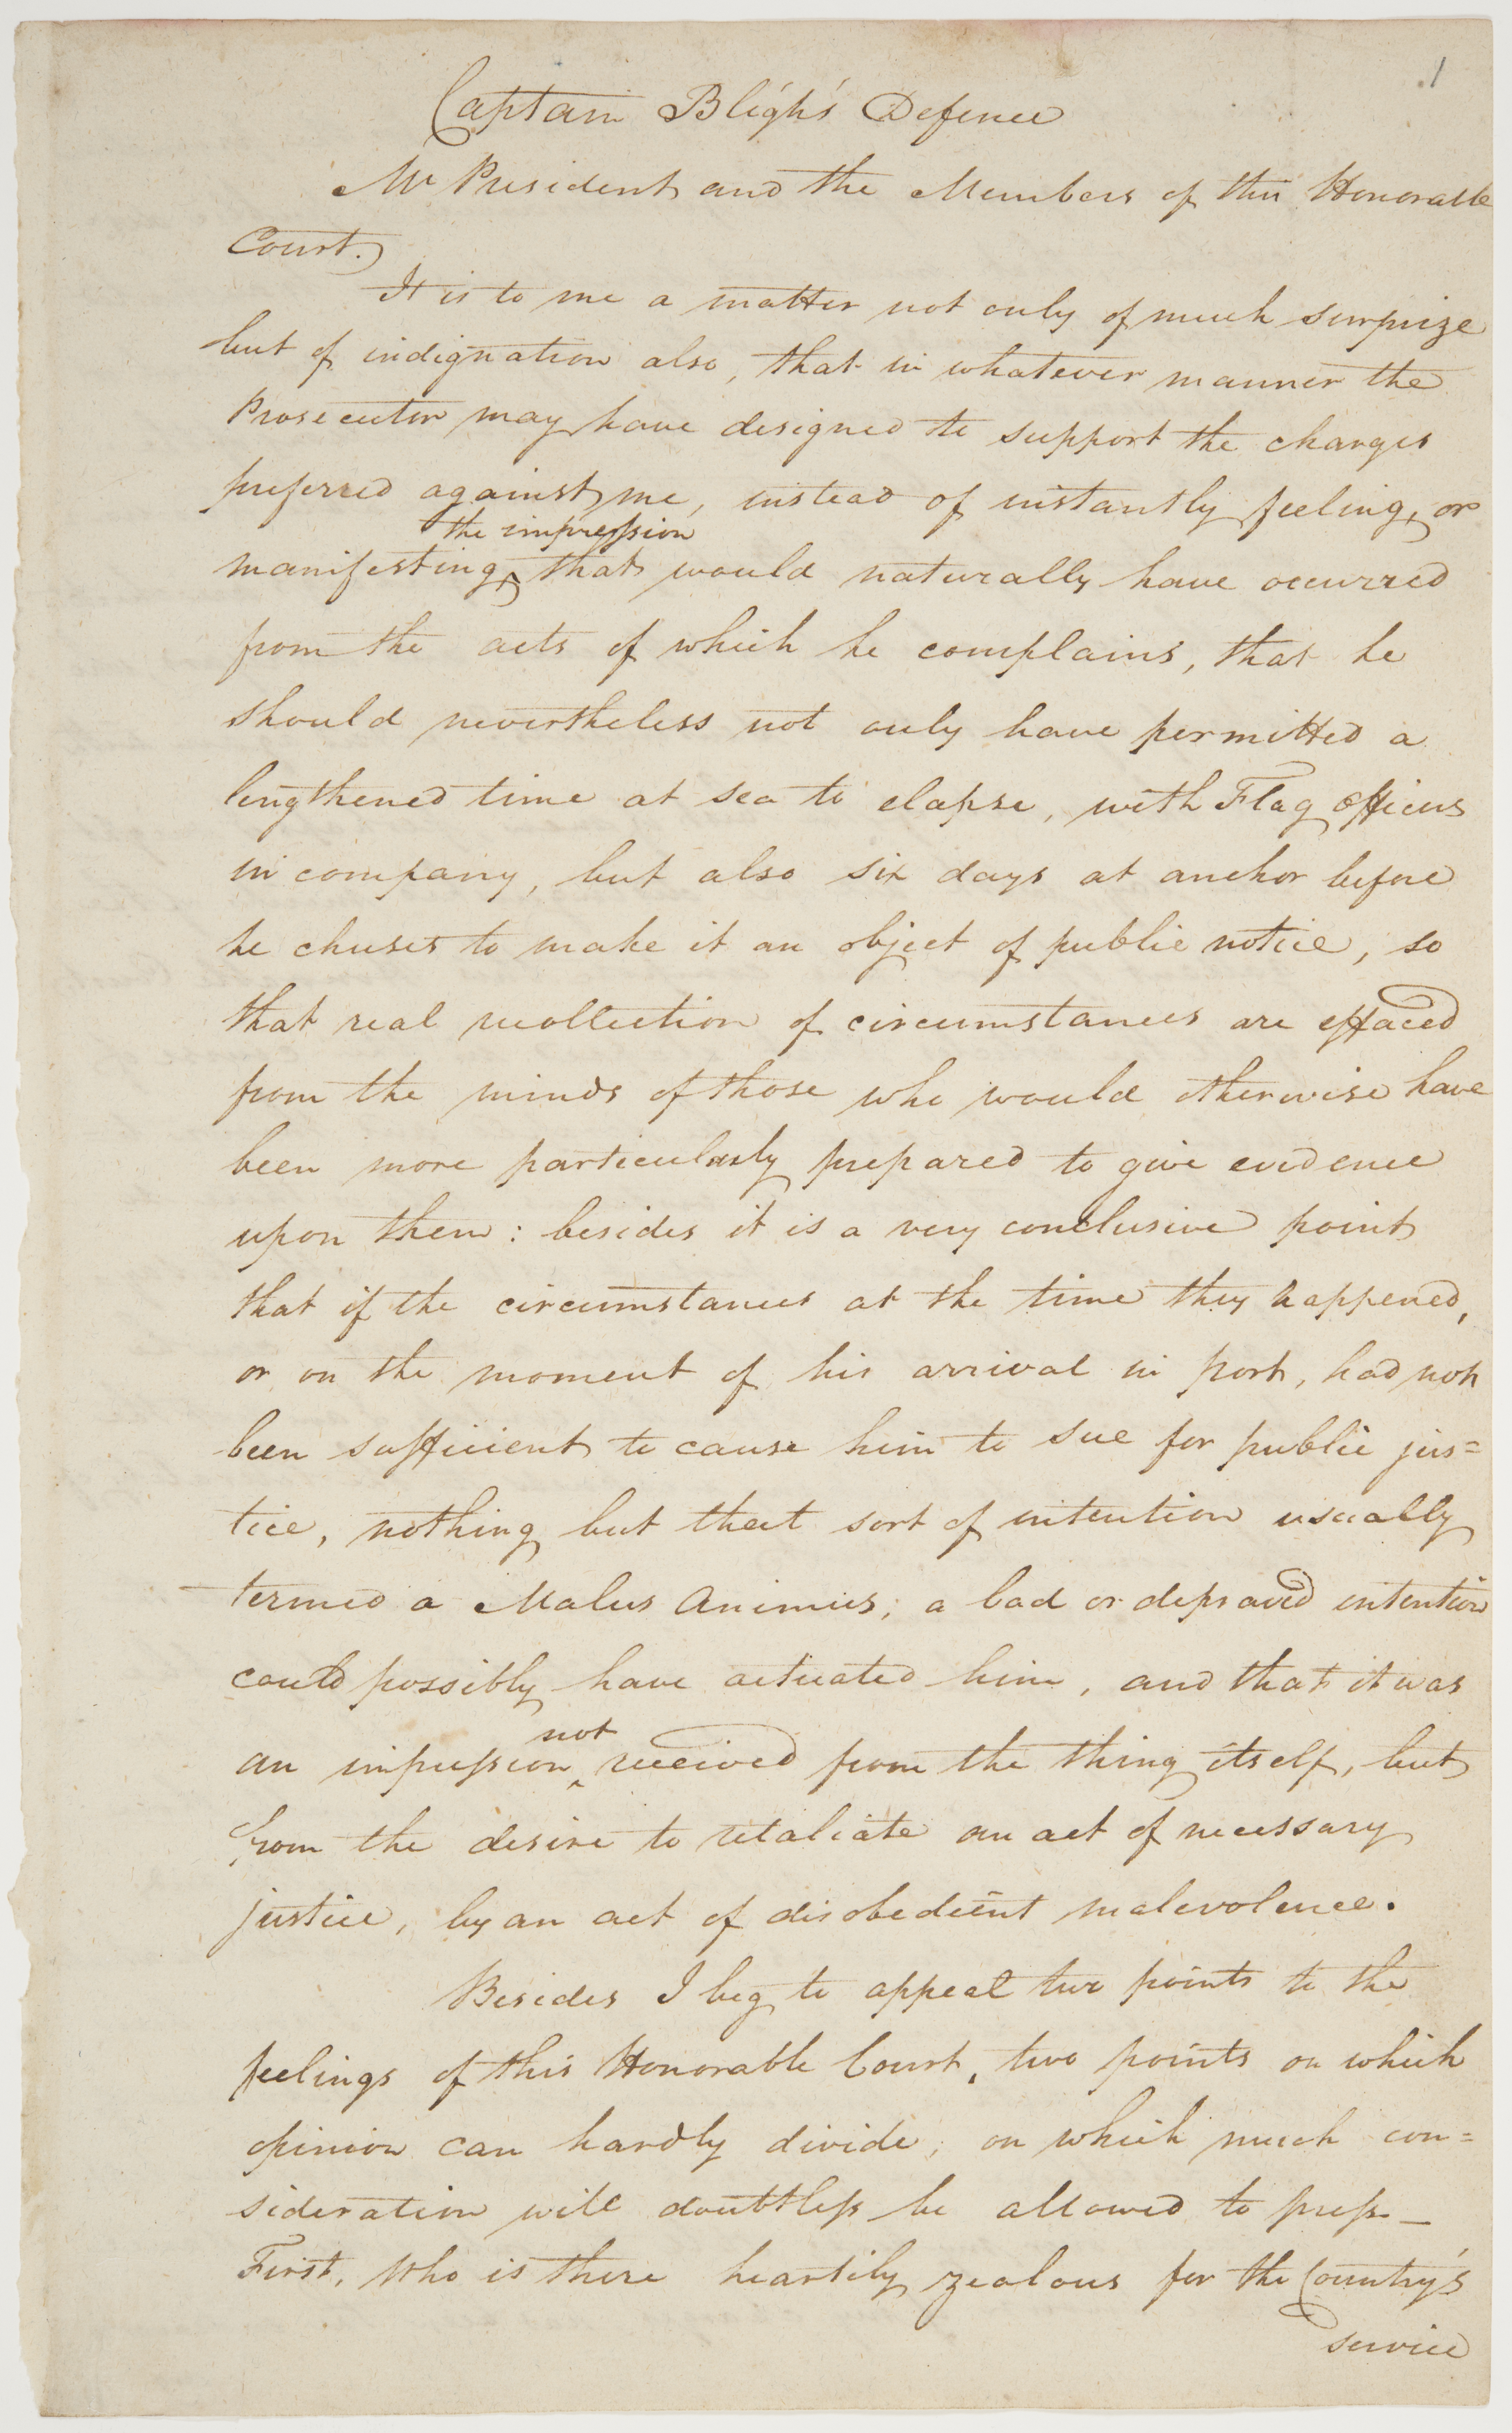 1
Captain Bligh's Defence
Mr President and the Members of this Honorable
Court.
It is to me a matter not only of much surprize
but of indignation also, that in whatever manner the
Prosecutor may have designed to support the charges
preferred against me, instead of instantly feeling, or
the impression
manifesting ^ that would naturally have occurred
from the acts of which he complains, that he
should nevertheless not only have permitted a
lengthened time at sea to elapse, with Flag officers
in company, but also six days at anchor before
he chuses to make it an object of public notice, so
that real recollection of circumstances are effaced
from the minds of those who would otherwise have
been more particularly prepared to give evidence
upon them: besides it is a very conclusive point
that if the circumstances at the time they happened,
or on the moment of his arrival in port, had not
been sufficient to cause him to sue for public jus=
tice, nothing but that sort of intention usually
termed a Malus Animus; a bad or depraved intention
could possibly have actuated him, and that it was
not
an impression ^ received from the thing itself, but
from the desire to retaliate an act of necessary
justice, by an act of disobedient malevolence.
Besides I beg to appeal two points to the
feelings of this Honorable Court, two points on which
opinion can hardly divide; on which much con=
sideration will doubtless be allowed to press —
First, Who is there heartily zealous for the Country's
service